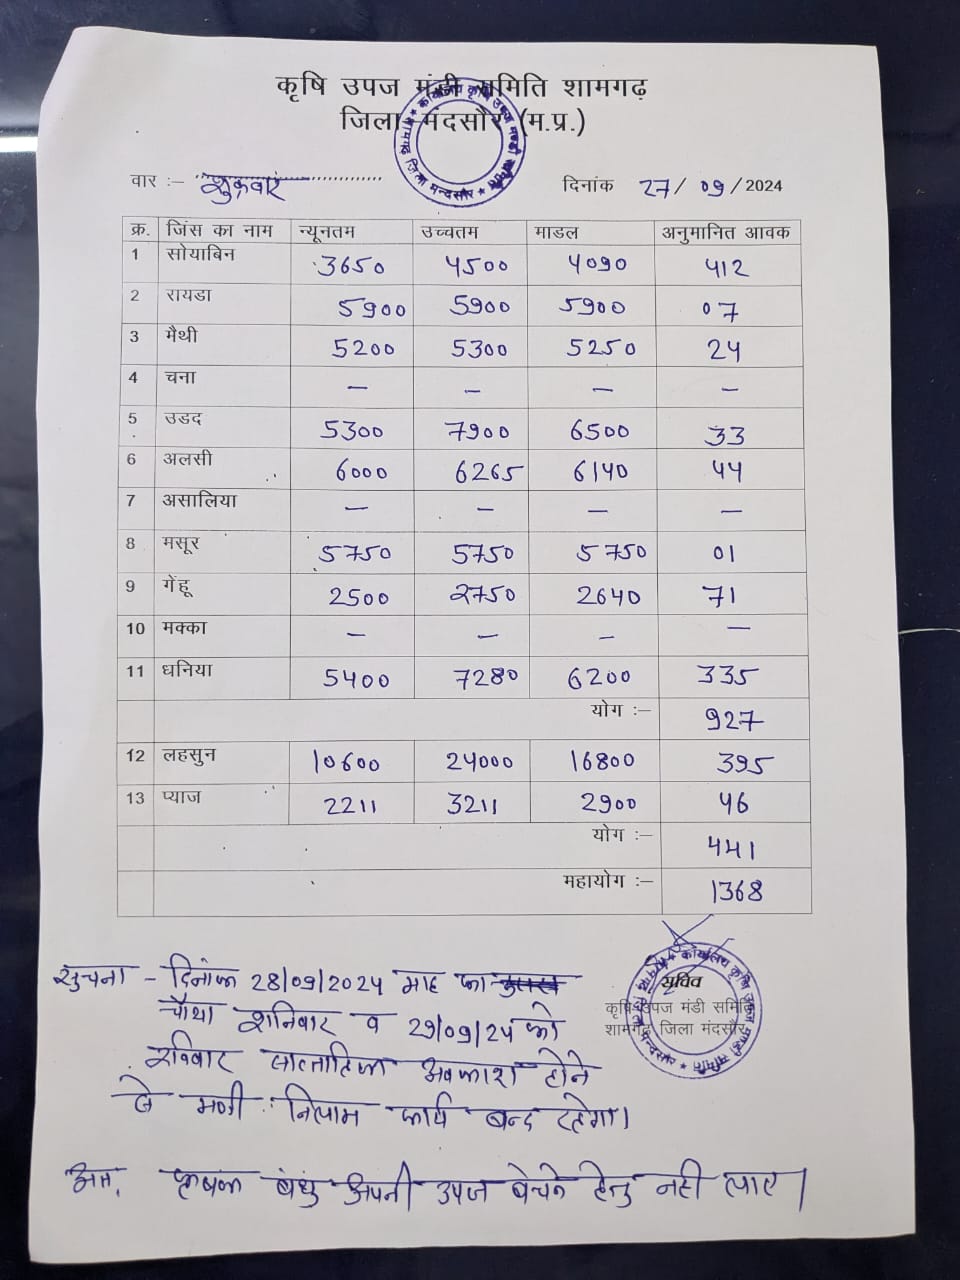 कृषि उपज मंडी समिति शामगढ़
जिला मंदसौर (म.प्र.)
वार :– शुक्रवार दिनांक 27/09/2024
क्र. जिंस का नाम न्यूनतम उच्चतम माडल अनुमानित आवक
1 सोयाबिन 3650 4500 4090 412
2 रायडा 5900 5900 5900 07
3 मैथी 5200 5300 5250 24
4 चना – – – –
5 उडद 5300 7900 6500 33
6 अलसी 6000 6265 6140 44
7 असालिया – – – –
8 मसूर 5750 5750 5750 01
9 गेंहू 2500 2750 2640 71
10 मक्का – – – –
11 धनिया 5400 7280 6200 335
योग :– 927
12 लहसुन 10600 24000 16800 395
13 प्याज 2211 3211 2900 46
योग :– 441
महायोग :– 1368
सचिव
कृषि उपज मंडी समिति
शामगढ़ जिला मंदसौर
सुचना – दिनांक 28/09/2024 माह का
चौथा शनिवार व 29/09/24 को
रविवार साप्ताहिक अवकाश होने
से मण्डी निलाम कार्य बन्द रहेगा।
अतः कृषक बंधु अपनी उपज बेचने हेतु नही लाए।